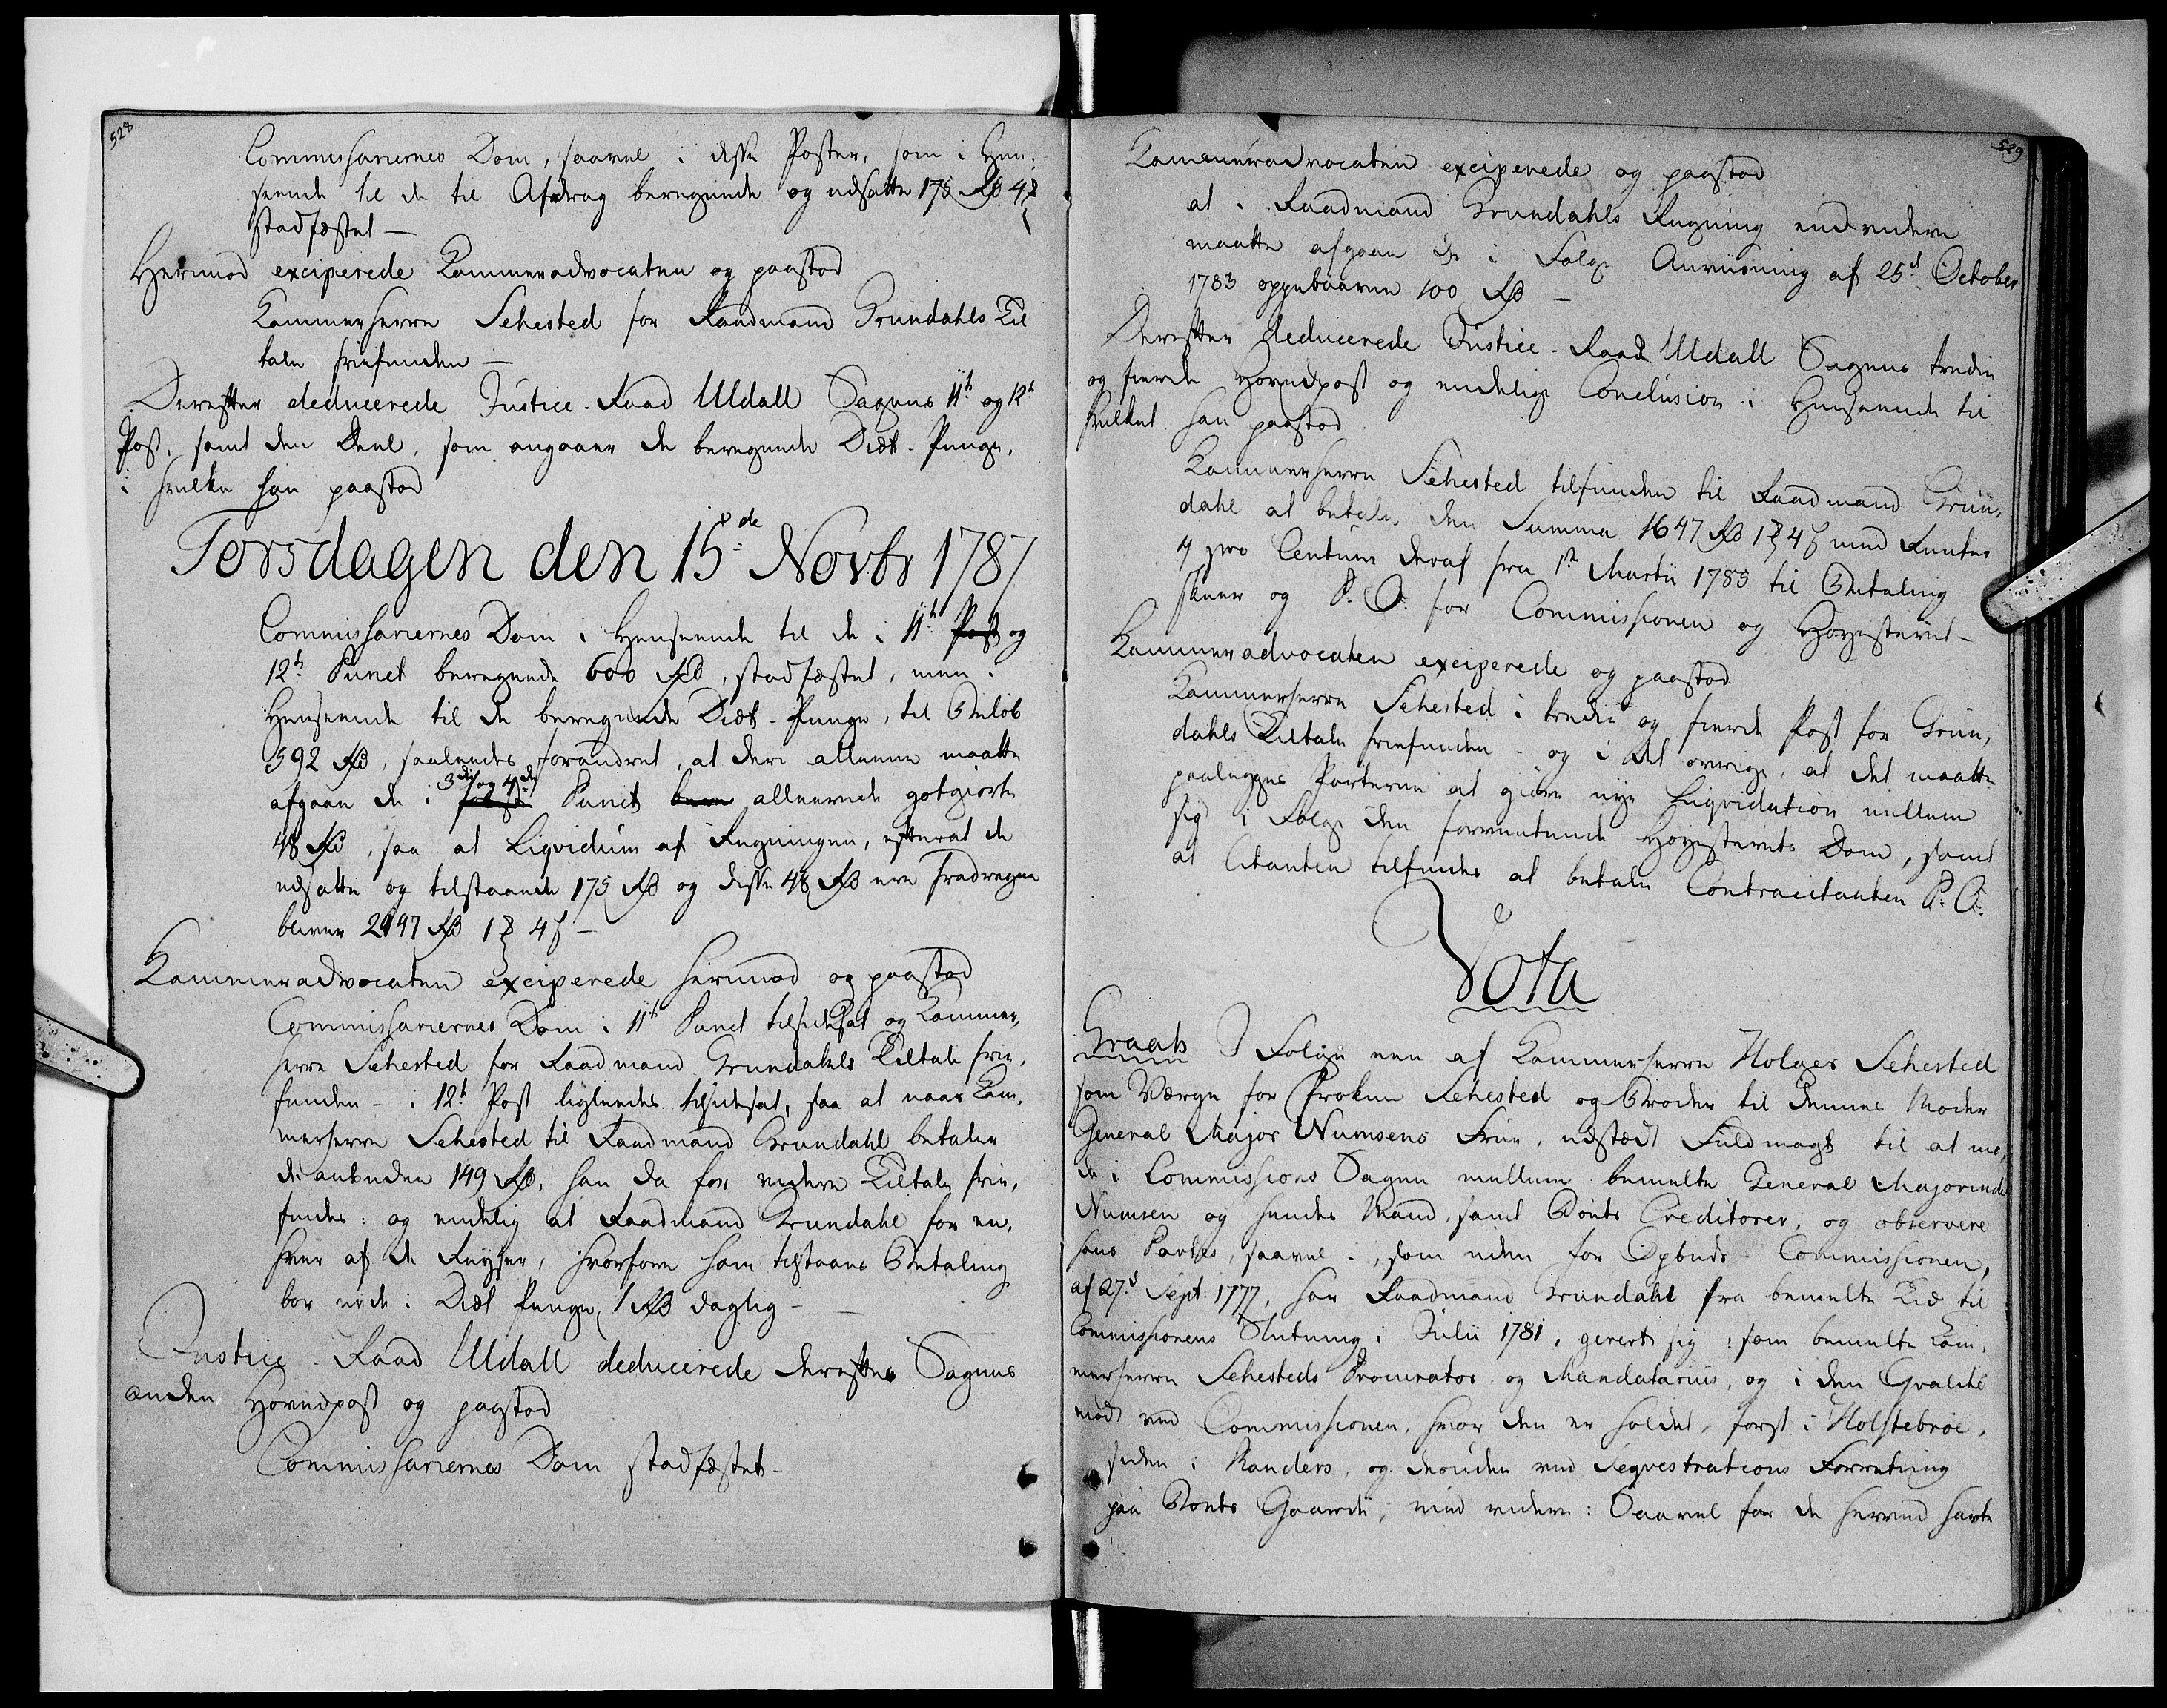 528
Commissariernes Dom, saavel i disse Poster, som i Hen-
seende til de til Afdrag beregnede og udsatte 175 Rd 4 ß
stadfæstet —
Hermod exciperede Kammeradvocaten og paastod
Kammerherre Sehested for Raadmand Grundahls Til
tale friefunden —
Derefter deducerede Justice-Raad Uldall Sagens 11te og 12te
Post, samt den Deel, som angaaer de beregnede Diæt-Penge,
i hvilke han paastod
Torsdagen den 15de Novbr 1787
Commissariernes Dom i Henseende til de i 11te Post og
12te Punct beregnede 600 Rd, stadfæstet, men i
Henseende til de beregnede Diæt-Penge, til Beløb
592 Rd, saaledes forandret, at deri alleene maatte
afgaae de i 3die og 4de Punct allereede godgiorte
48 Rd, saa at Liqvidum af Regningen, efterat de
udsatte og tilstaaende 175 Rd og disse 48 Rd ere fradragne
bliver 2147 Rd 1 ℥ 4 ß —
Kammeradvocaten exciperede hermod og paastod
Commissariernes Dom i 11te Punct tilsidesat og Kammer-
herre Sehested for Raadmand Grundahls Tiltale frie-
funden — i 12te Post ligeledes tilsidesat, saa at naar Kam-
merherre Sehested til Raadmand Grundahl betaler
de anbudne 149 Rd, han da for videre Tiltale frie-
findes: og endelig at Raadmand Grundahl for en-
hver af de Reyser, hvorfore ham tilstaaes Betaling
bør nyde i Diæt Penge, 1 Rd daglig —
Justice-Raad Uldall deducerede derefter Sagens
anden Hovedpost og paastod
Commissariernes Dom stadfæstet —
529
Kammeradvocaten exciperede og paastod
at i Raadmand Grundahls Regning endvidere
maatte afgaae de i Følge Anviisning af 25d October
1783 oppebaarne 100 Rd —
Derefter deducerede Justice-Raad Uldall Sagens tredie
og fierde Hovedpost og endelige Conclusion i Henseende til
hvilket han paastod
Kammerherre Sehested tilfunden til Raadmand Grun-
dahl at betale den Summa 1647 Rd 1 ℥ 4 ß med Renter
4 pro Centum deraf fra 1te Martii 1785 til Betaling
skeer og P. O. for Commissionen og Høyesteret —
Kammeradvocaten exciperede og paastod
Kammerherre Sehested i tredie og fierde Post for Grun-
dahls Tiltale friefunden — og i det øvrige, at det maatte
paalegges Parterne at giøre nye Liqvidation mellem
sig i Følge den forventende Høyesterets Dom, samt
at Citanten tilfindes at betale Contracitanten P. O.
Vota
Graah I Følge een af Kammerherre Holger Sehested
som Værge for Frøken Sehested og Broder til dennes Moder
General Major Numsens Frue, udstædt Fuldmagt til at mø-
de i Commissions Sagen mellem bemelte General Majorinde
Numsen og hendes Mand, samt Boets Creditorer, og observere
hans Partes, saavel i, som uden for Opbuds-Commissionen,
af 27d Sept: 1777, har Raadmand Grundahl fra bemelte Tid til
Commissionens Slutning i Julii 1781, gereret sig: som bemelte Kam-
merherre Sehesteds Procurator og Mandatarius, og i den Qvalité
mødt ved Commissionen, hvor den er holdet, først i Holstebroe,
siden i Randers, og desuden ved Seqvestrations Forretning
paa Boets Gaarde, med videre: Saavel for de herved havte